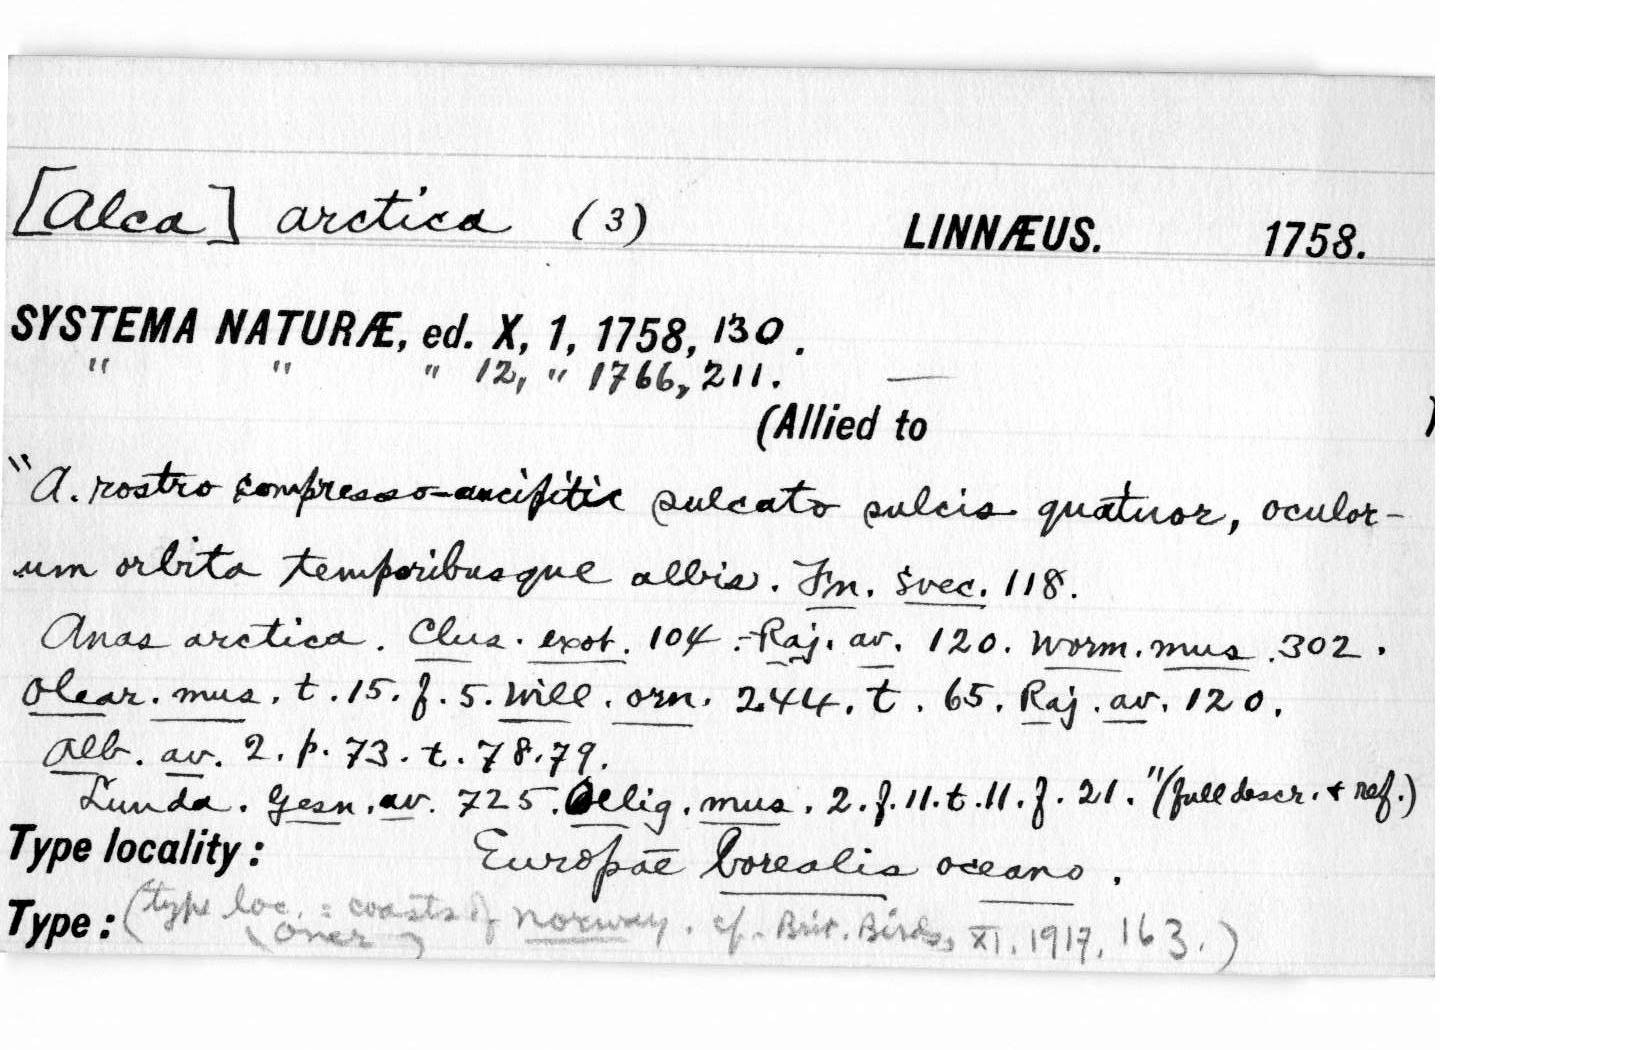 [Alca] arctica (3) LINNÆUS. 1758.
SYSTEMA NATURÆ, ed. X, 1, 1758, 130.
" " " 12, " 1766, 211. —
(Allied to )
"A. rostro compresso-ancipitic sulcato sulcis quatuor, oculor-
um orbita temporibusque albis. Fn. svec. 118.
Anas arctica. Clus. exot. 104.-Raj. av. 120. Worm. mus. 302.
Olear. mus. t. 15. f. 5. Will. orn. 244. t. 65. Raj. av. 120.
Alb. av. 2. p. 73. t. 78.79.
Lunda. Gesn. av. 725. Olig. mus. 2. f. 11. t. 11. f. 21." (full descr. & ref.)
Type locality: Europae borealis oceano.
Type: (type loc. = coasts of Norway. cf. Brit. Birds, XI, 1917, 163.)